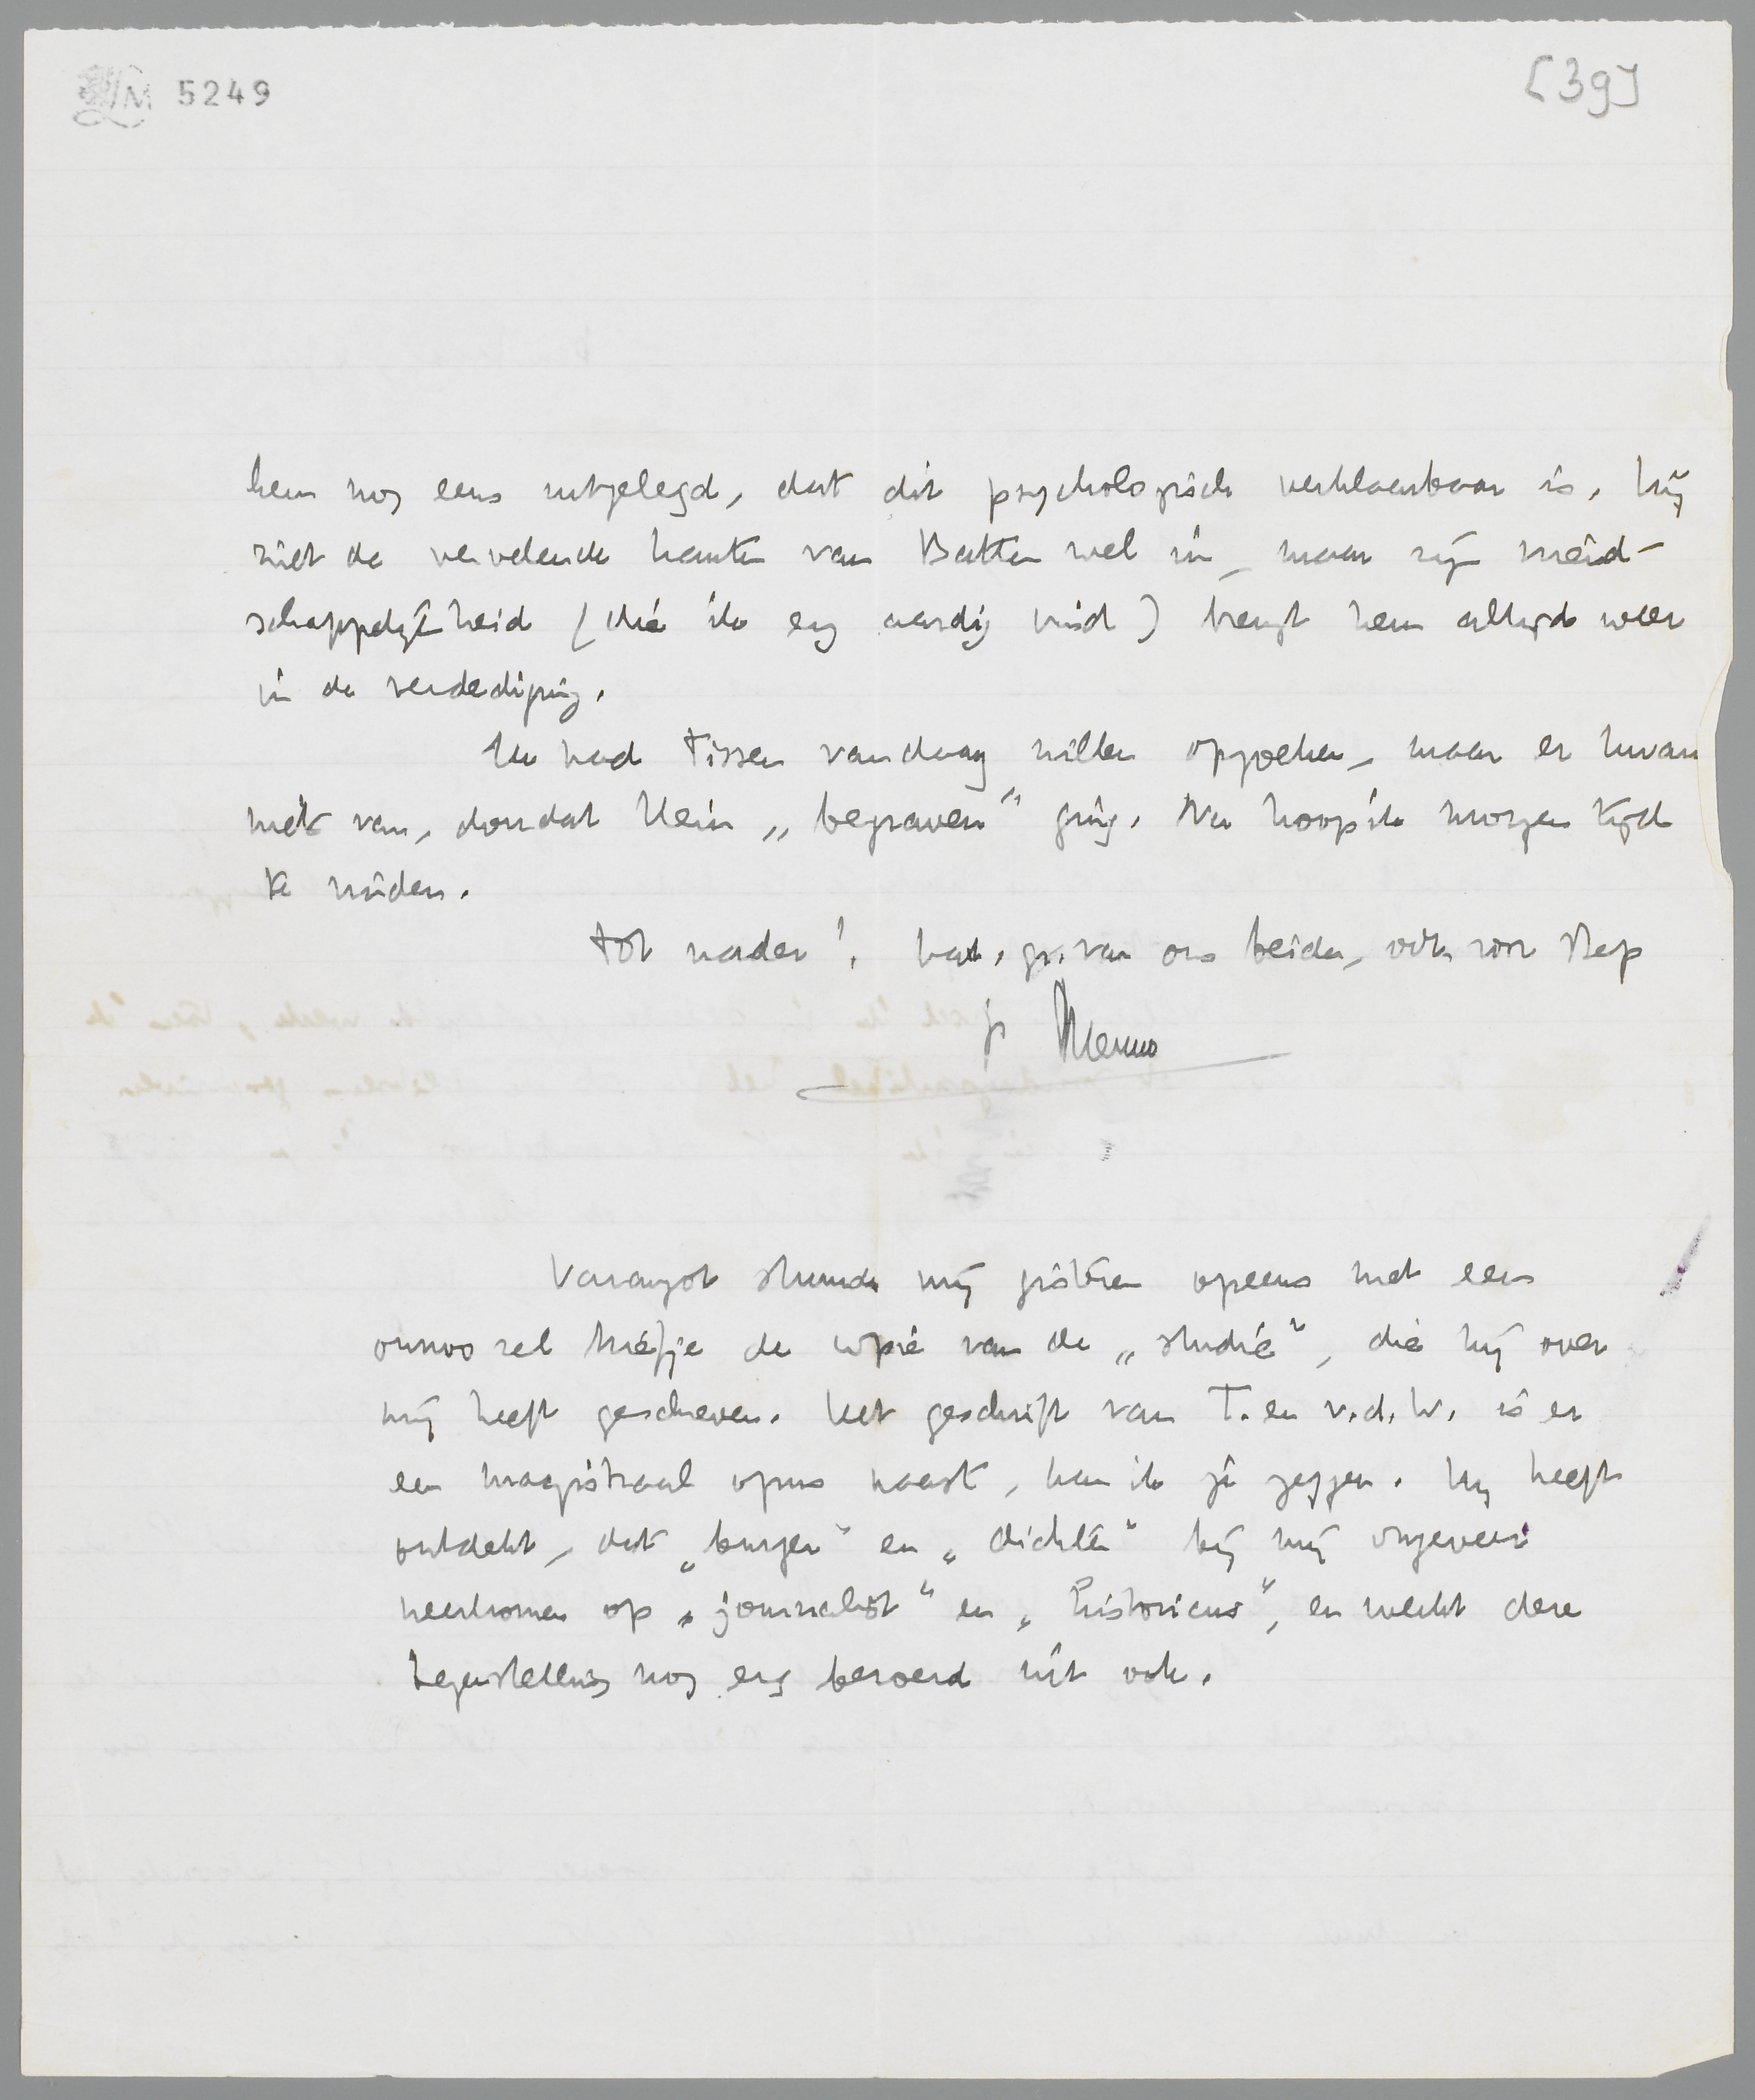 LM 5249
[39]
hem nog eens uitgelegd, dat dit psychologisch verklaarbaar is. Hij
ziet de vervelende kanten van Batten wel in, maar zijn vriend-
schappelijkheid (die ik erg aardig vind) brengt hem altijd weer
in de verdediging.
Ik had Tissen vandaag willen opzoeken, maar er kwam
niet van, doordat Hein „begraven" ging. Nu hoop ik morgen tijd
te vinden.
Tot nader! hart. gr. van ons beiden, ook voor Bep
je Menno
Varangot stuurde mij gisteren opeens met een
onnoozel briefje de copie van de „studie", die hij over
mij heeft geschreven. Het geschrift van T. en v.d.W. is er
een magistraal opus naast, kan ik je zeggen. Hij heeft
ontdekt, dat „burger" en „dichter" bij mij ongeveer
neerkomen op „journalist" en „historicus", en werkt deze
tegenstelling nog erg beroerd uit ook.